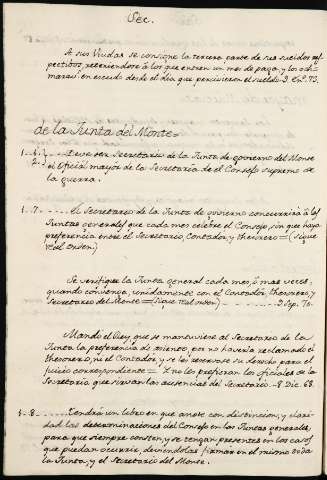 Sec.
A sus Viudas se consigne la tercera parte de sus sueldos res-
petivos, reteniendose à los que entren un mes de paga, y los dè-
mas en cuando desde el dia que percivieren el sueldo. 3. En.º 73.
de la Junta del Monte=
1..1.. Deve ser Secretario de la Junta de govierno del Monte
2.. el oficial mayor de la Secretaria de el Consejo supremo de
la guerra.
1..7. El Secretario de la Junta de govierno concurrirà à las
Juntas generales que cada mes celebre el Consejo, sin que haya
preferencia entre el Secretario, Contador, y thesorero = (Sigue
real orden)
Se verifique la Junta general cada mes, ò mas veces,
quando convenga, unidamente con el Contador, thesorero, y
Secretario del Monte = (Sigue real orden) 3. Sep. 70.
Mandò el Rey, que se mantuviese al Secretario de la
Junta la preferencia de asiento, por no haverla reclamado el
thesorero, ni el Contador, y se les reservase su derecho para el
juicio correspondiente = Y no les prefieran los oficiales de la
Secretaria que sirvan las ausencias del Secretario. 8. Dic. 68.
1..8. Tendrà un libro en que anote con distincion, y clari-
dad las determinaciones del Consejo en las Juntas generales,
para que siempre consten, y se tengan presentes en los casos
que puedan ocurrir, deviendolas firmar en el mismo toda
la Junta, y el Secretario del Monte.